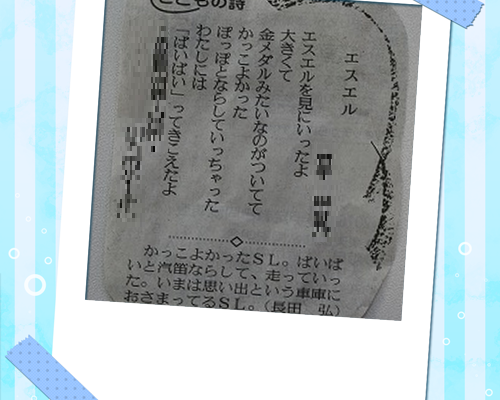 こどもの詩
エスエル
エスエルを見にいったよ
大きくて
金メダルみたいなのがついてて
かっこよかった
ぽっぽとならしていっちゃった
わたしには
「ばいばい」ってきこえたよ
かっこよかったＳＬ。ばいば
いと汽笛ならして、走っていっ
た。いまは思い出という車庫に
おさまってるＳＬ。（長田　弘）